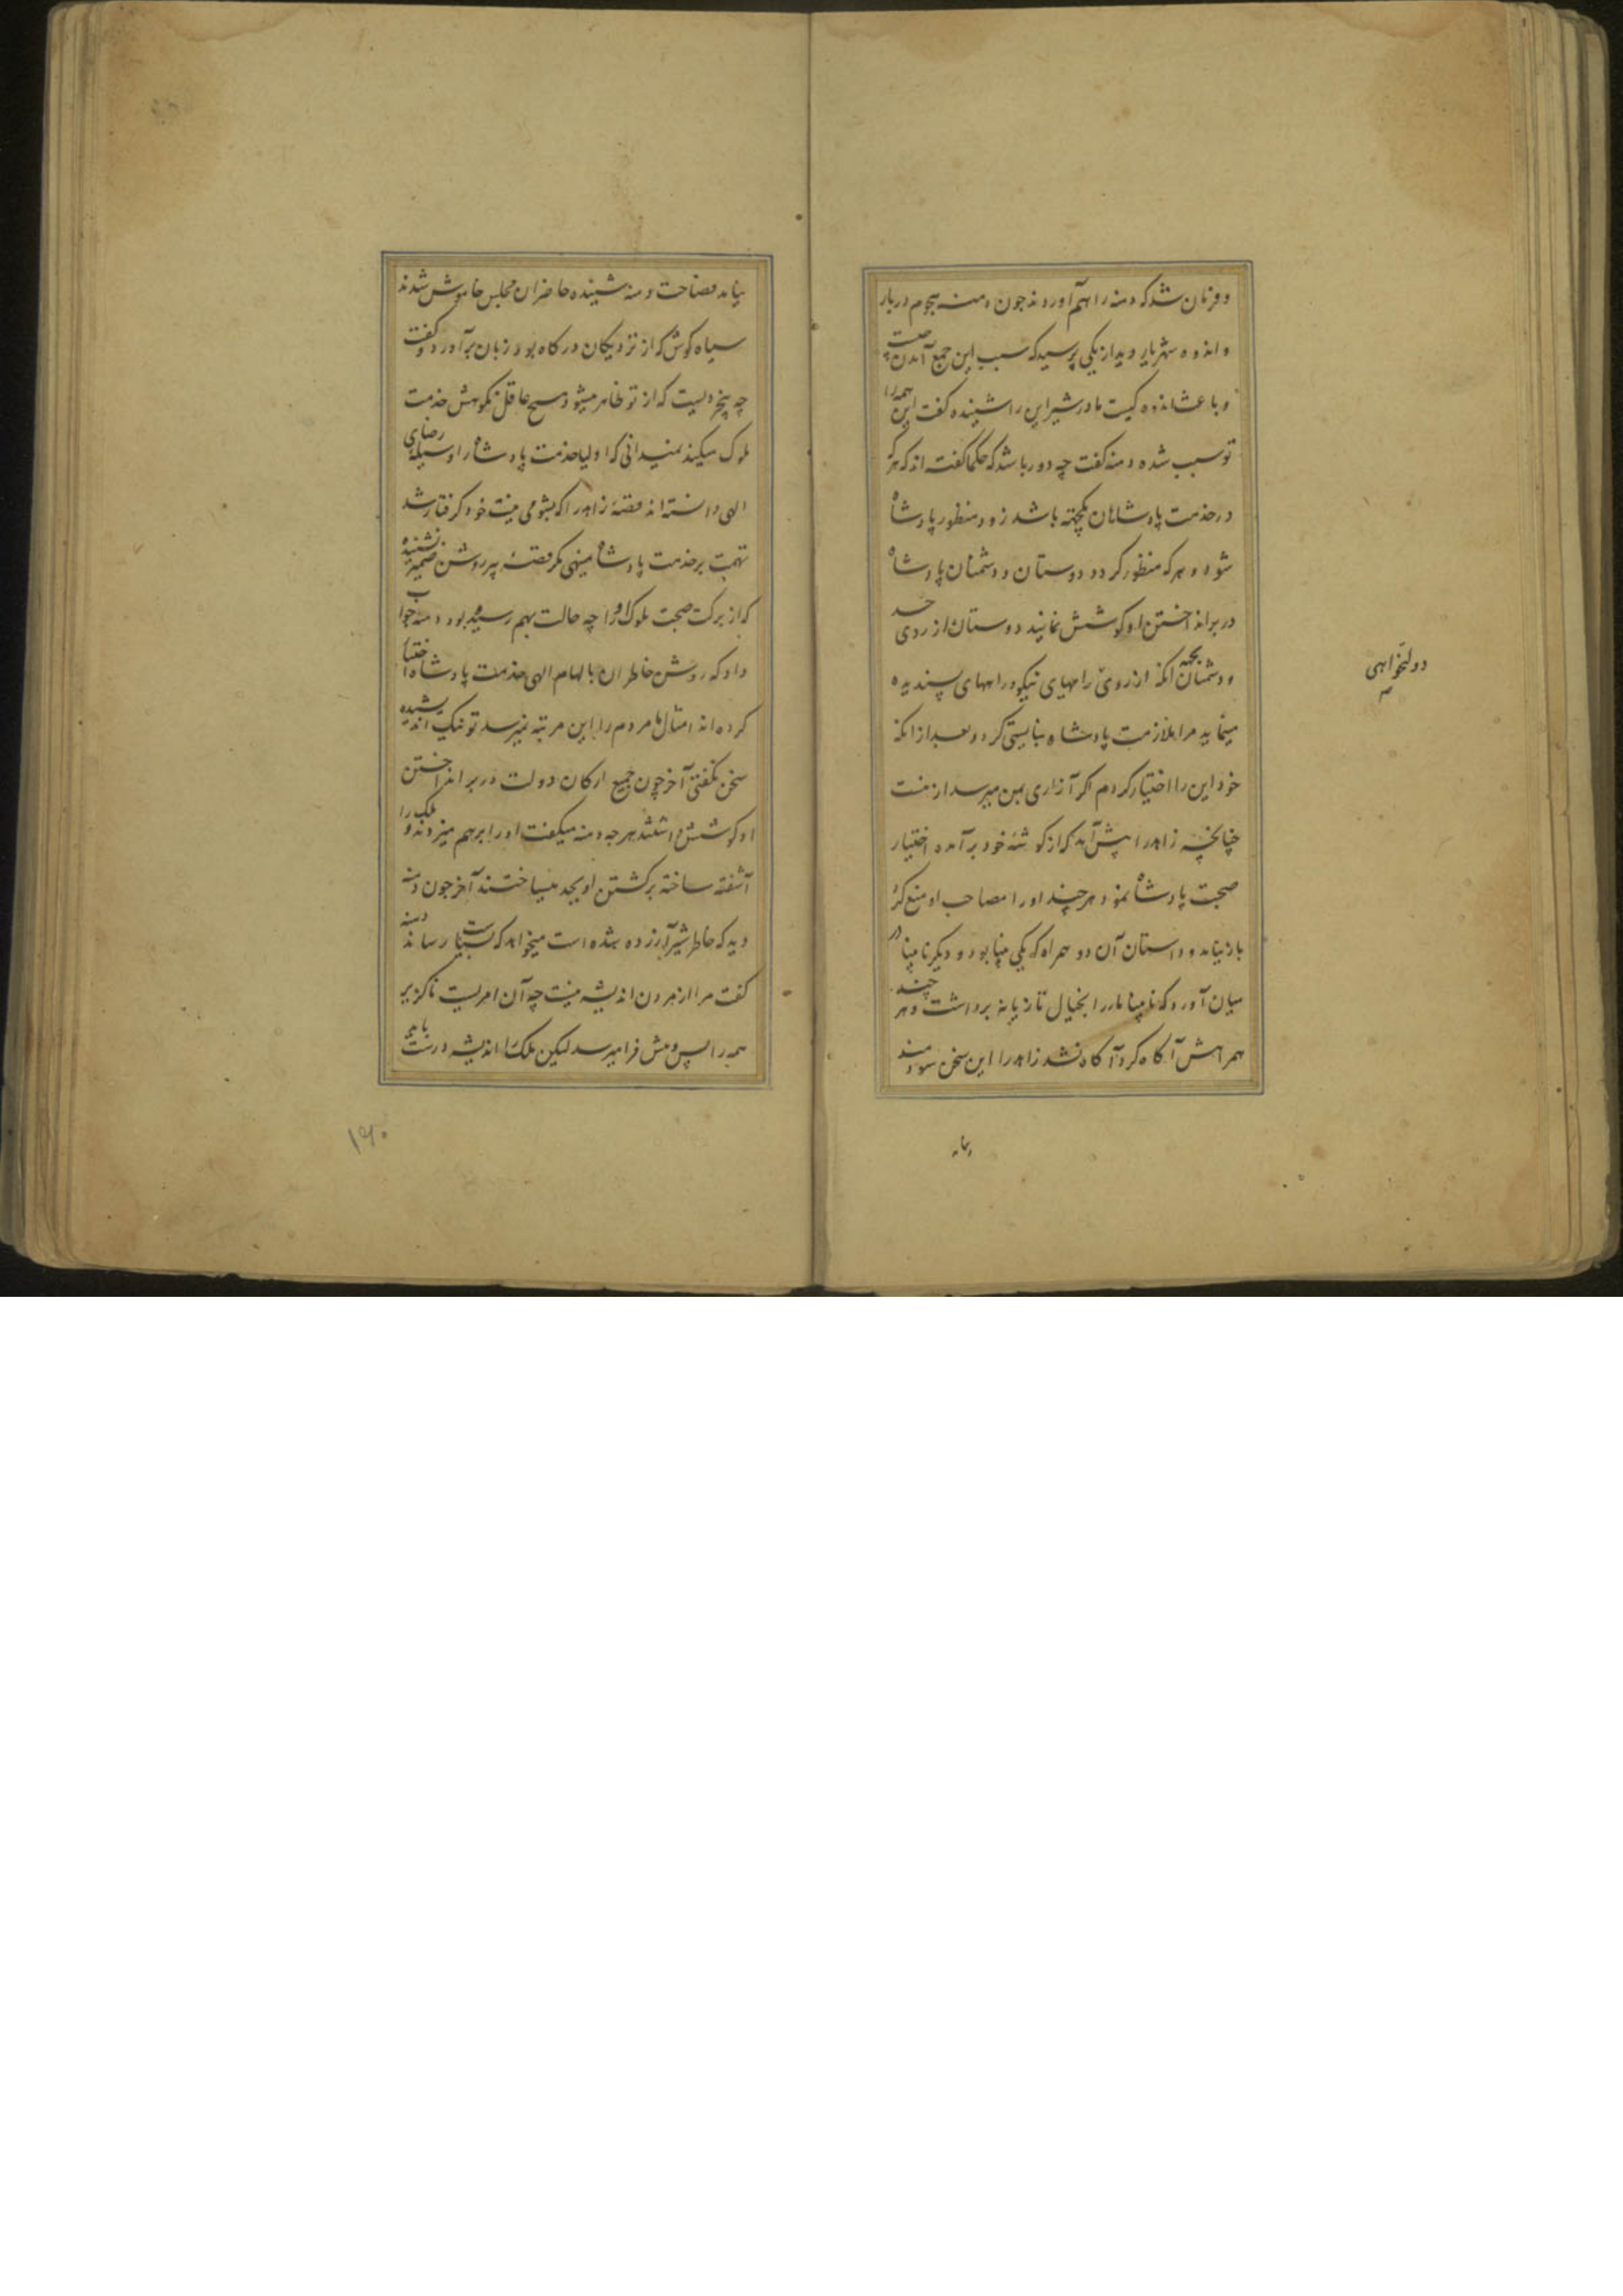 و فرمان شد که دمنه را هم آوردند چون دمنه هجوم دربار
و اندوه شهریار دید از یکی پرسید که سبب این جمع آمدن چیست
و باعث اندوه کیست مادر شیر این را شنیده گفت این همه را
تو سبب شده دمنه گفت چه دور باشد که حکما گفته اند که هر که
در خدمت پادشاهان یکجهته باشد زود منظور پادشاه
شود و هر که منظور گردد دوستان و دشمنان پادشاه
در برانداختن او کوشش نمایند دوستان از روی حسد
و دشمنان بجهة آنکه از روی رایهای نیکو و راههای پسندیده
دولتخواهی
مینماید مرا ملازمت پادشاه نبایستی کرد و بعد از آنکه
خود این را اختیار کردم اگر آزاری بمن میرسد از منست
چنانچه زاهد را پیش آمد که از گوشه خود برآمده اختیار
صحبت پادشاه نمود هر چند او را مصاحب او منع کرد
باز نیامد و داستان آن دو همراه که یکی بینا بود و دیگر نابینا در
میان آورد که نابینا مار را بخیال تازیانه برداشت و هر چند
همراهش آگاه کرد آگاه نشد زاهد را این سخن سودمند
نیامد
نیامد فصاحت دمنه شنیده حاضران مجلس خاموش شدند
سیاه گوش که از نزدیکان درگاه بود زبان برآورد و گفت
چه بیخردیست که از تو ظاهر میشود هیچ عاقل نکوهش خدمت
ملوک میکند نمیدانی که اولیا خدمت پادشاه را وسیله رضای
الهی دانسته اند قصه زاهد را که بشومی نیت خود گرفتار شد
تهمت بر خدمت پادشاه مینهی مگر قصه پیر روشن ضمیر نشنیده
که از برکت صحبت ملوک او را چه حالت بهم رسیده بود دمنه جواب
داد که روشن خاطران بالهام الهی خدمت پادشاه اختیار
کرده اند امثال ما مردم را این مرتبه نمیرسد تو نیک اندیشیده
سخن نگفتی آخر چون جمیع ارکان دولت در برانداختن
او کوشش داشتند هر چه دمنه میگفت او را برهم میزدند و ملک را
آشفته ساخته بر کشتن او بجد میساختند آخر چون دمنه
دید که خاطر شیر آزرده شده است میخواهد که بسیاست رساند دمنه
گفت مرا از مردن اندیشه نیست چه آن امریست ناگزیر
همه را پس و پیش فرا میرسد لیکن ملک را اندیشه درست باید
۱۶۰